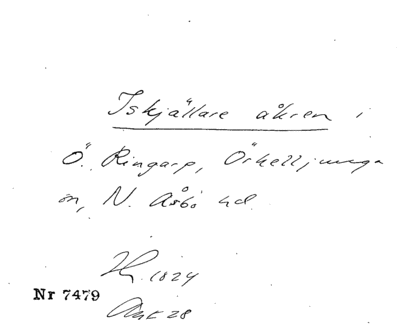 Iskjällare åkren i
Ö. Ringarp, Örkelljunga
sn, N. Åsbo hd.
H. 1824
Nr 7479
Akt 28